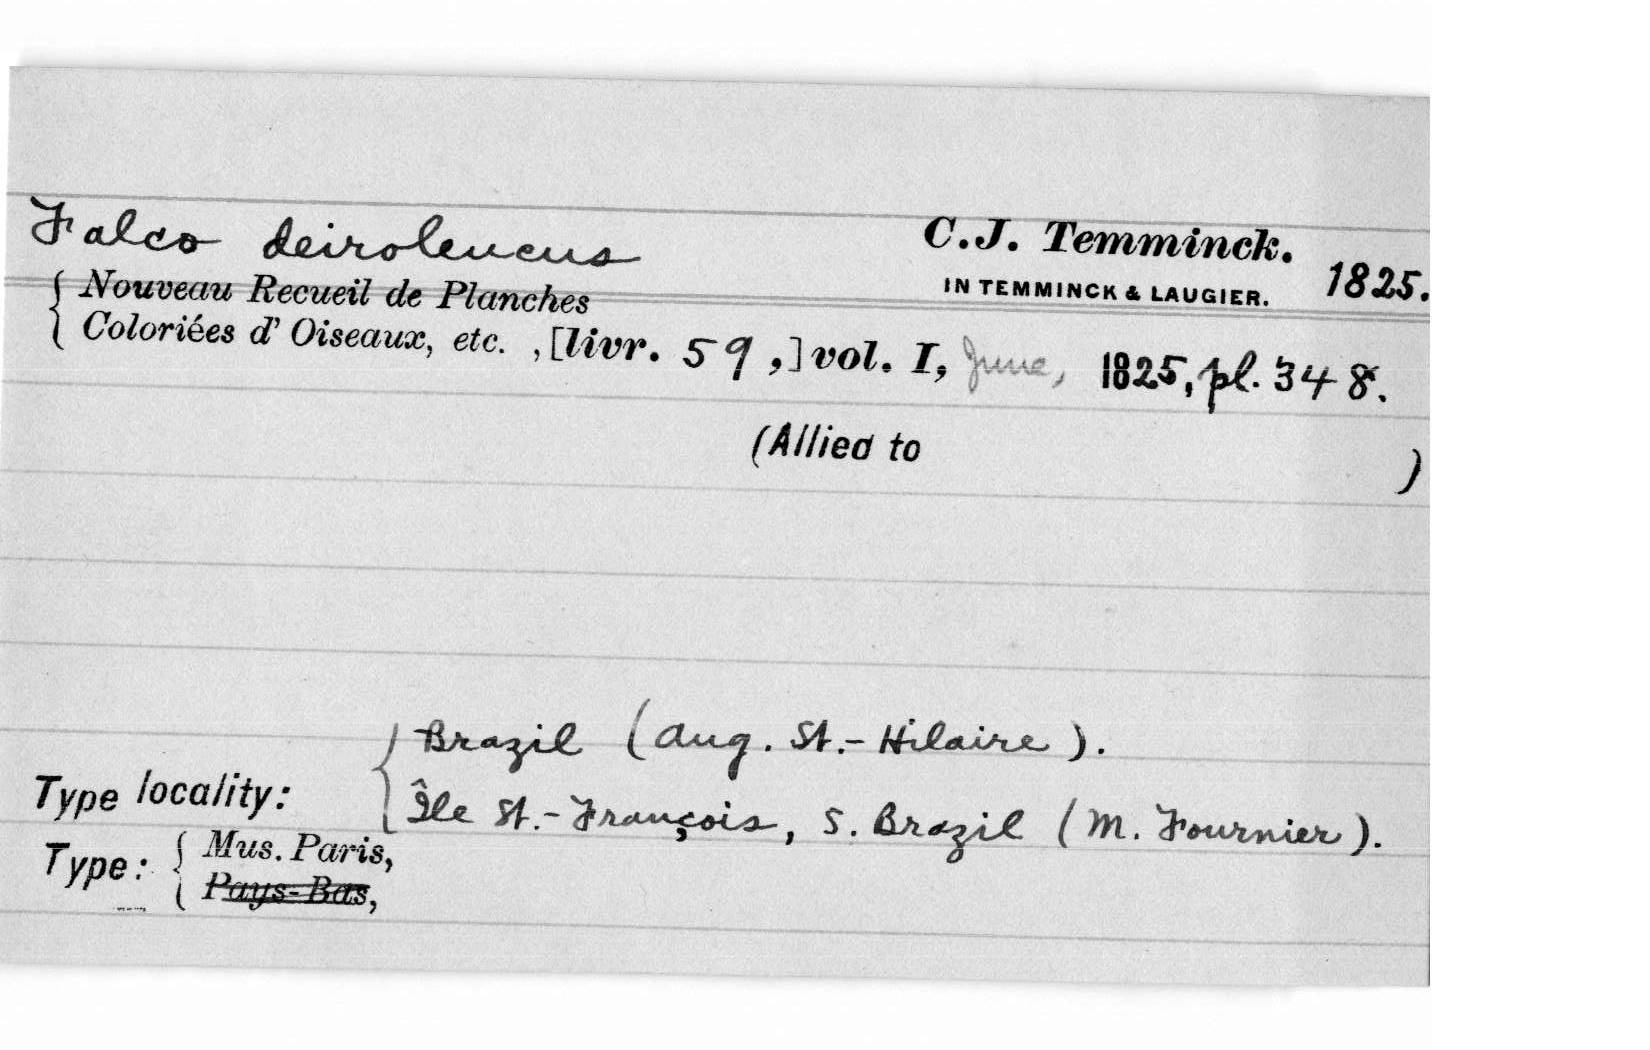 Falco deiroleucus C.J. Temminck.
IN TEMMINCK & LAUGIER. 1825.
{ Nouveau Recueil de Planches
Coloriées d' Oiseaux, etc. , [livr. 59 ,] vol. I, June, 1825, pl. 348.
(Allied to )
{ Brazil (Aug. St.-Hilaire).
Type locality:
Île St.-François, S. Brazil (M. Fournier).
Type: { Mus. Paris,
Pays-Bas,